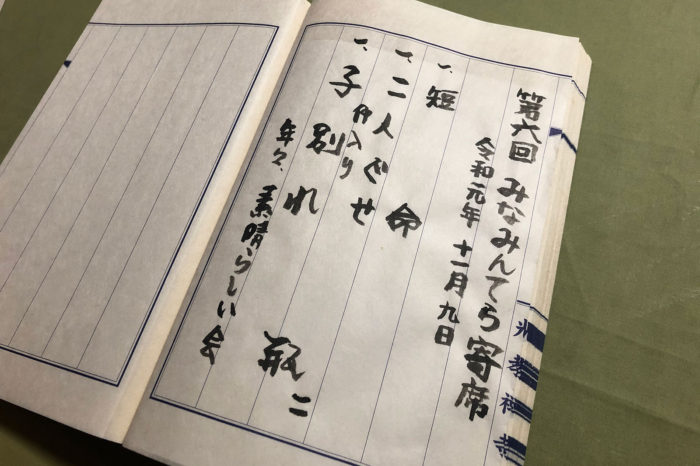 第六回 みなみんてら寄席
令和元年 十一月 九日
一、短命
一、二人ぐせ
仲入り
一、子別れ
瓶二
年々、素晴らしい会